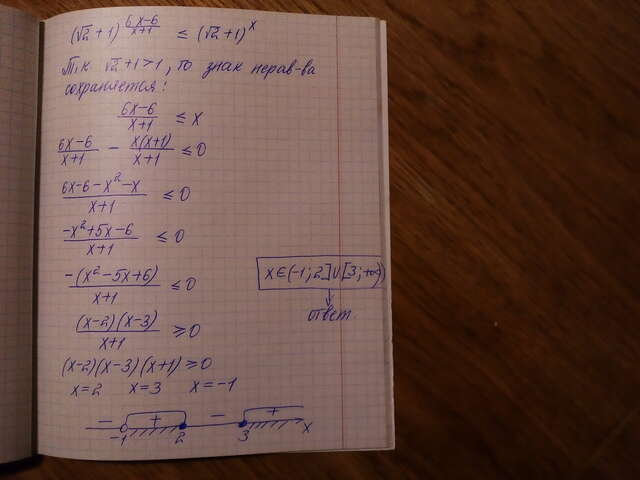 (√2 + 1)^((6x-6)/(x+1)) ≤ (√2 + 1)^x
Т.к. √2+1>1, то знак нерав-ва
сохраняется:
(6x-6)/(x+1) ≤ x
(6x-6)/(x+1) - (x(x+1))/(x+1) ≤ 0
(6x-6-x²-x)/(x+1) ≤ 0
(-x²+5x-6)/(x+1) ≤ 0
(-(x²-5x+6))/(x+1) ≤ 0
((x-2)(x-3))/(x+1) ≥ 0
(x-2)(x-3)(x+1) ≥ 0
x=2 x=3 x=-1
- + - +
-1 2 3 x
x∈(-1;2]∪[3;+∞)
ответ.